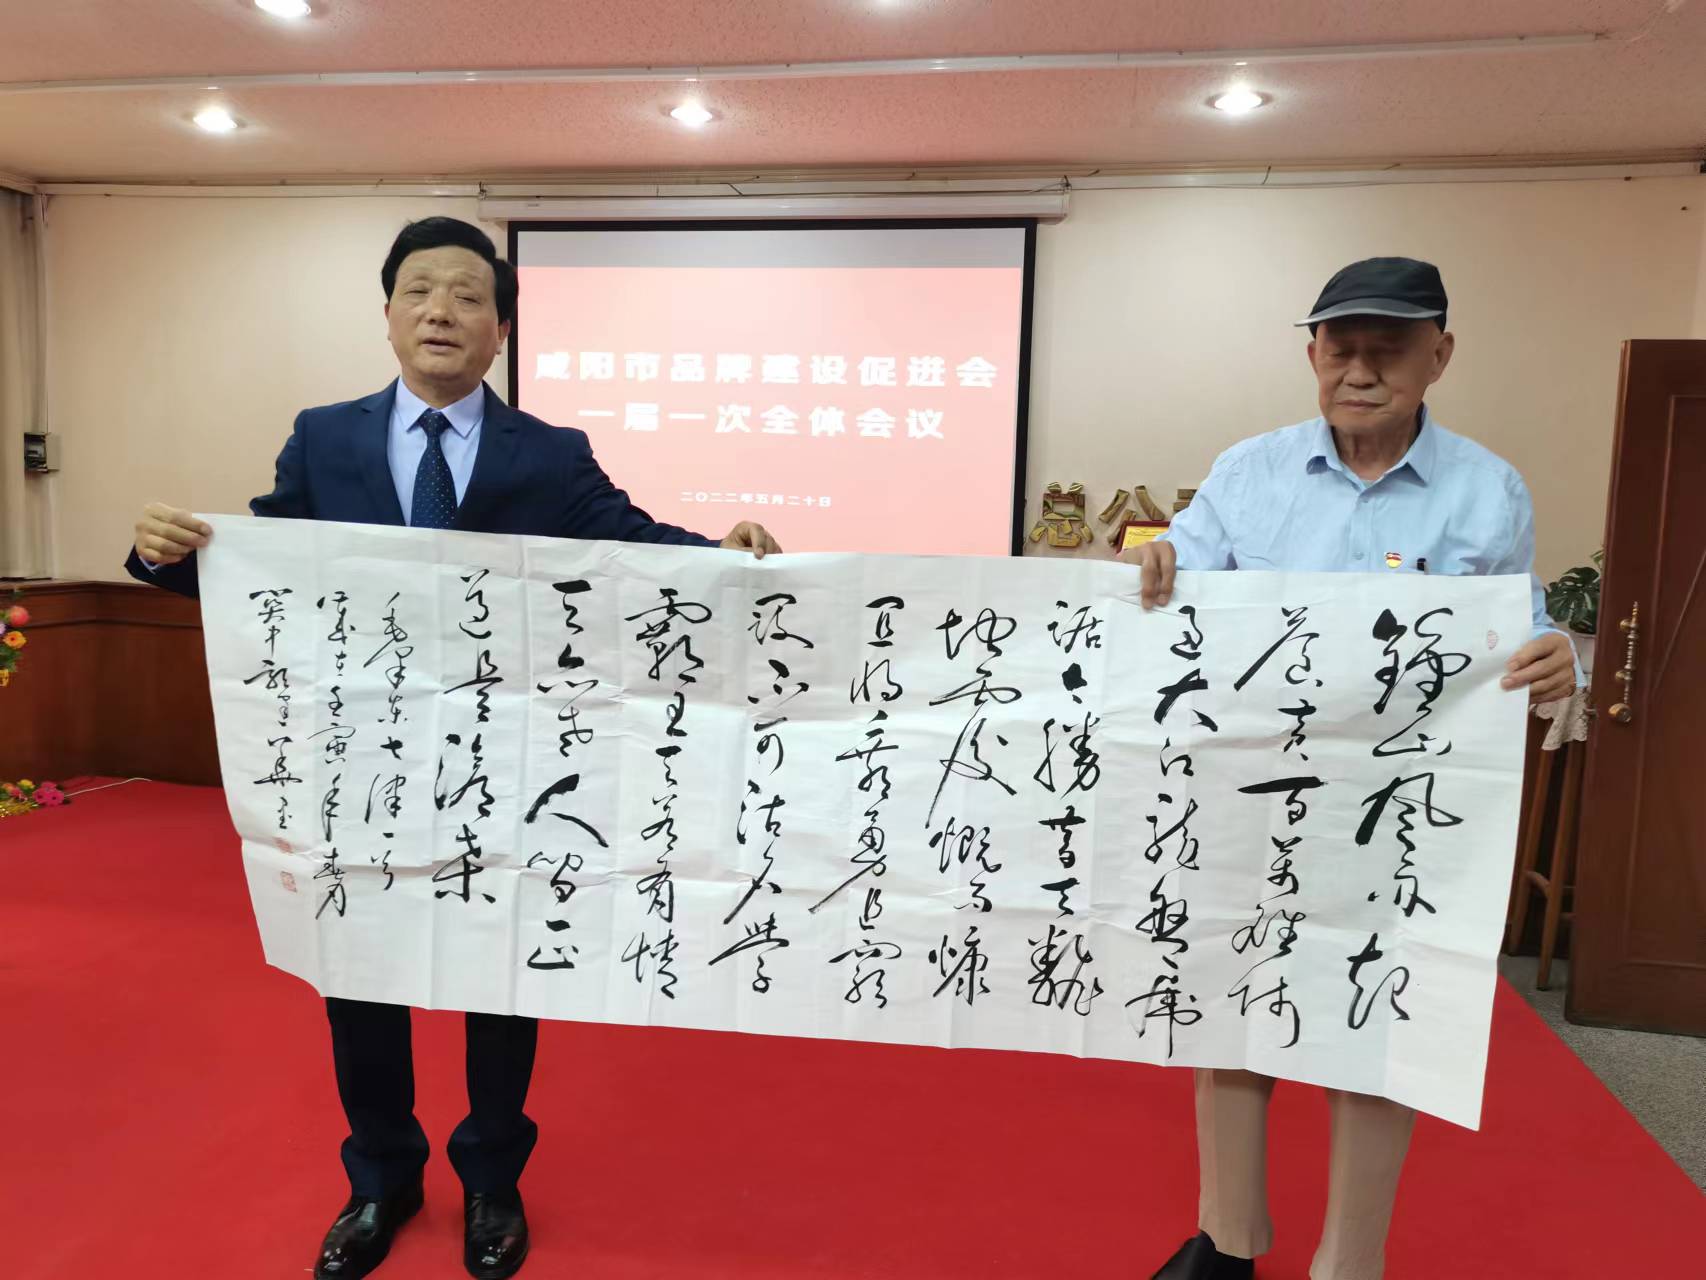 咸阳市品牌建设促进会
一届一次全体会议
二〇二二年五月二十日
总公
鍾山風雨起
蒼黄百萬雄師
过大江龍盤虎
踞今勝昔天翻
地覆慨而慷
宜将剩勇追窮
寇不可沽名學
霸王天若有情
天亦老人間正
道是滄桑
毛澤東七律一首
歲在壬寅年春月
關中